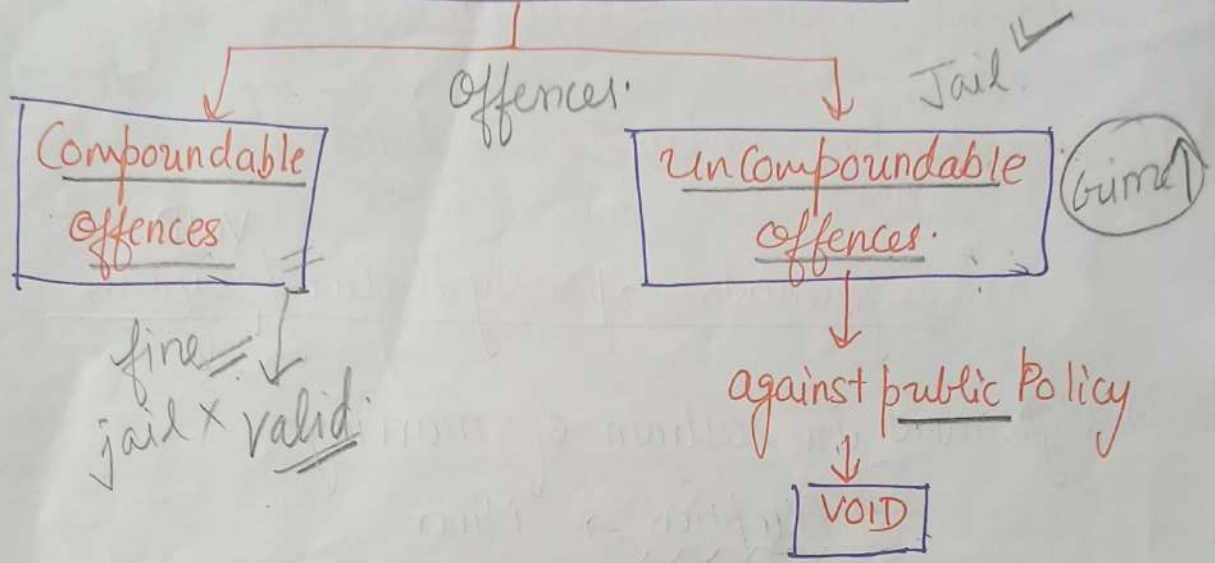 Offences.
Jail ✓
Compoundable
Offences
Uncompoundable
Offences.
Crime↑
fine
jail × valid.
against public Policy
VOID